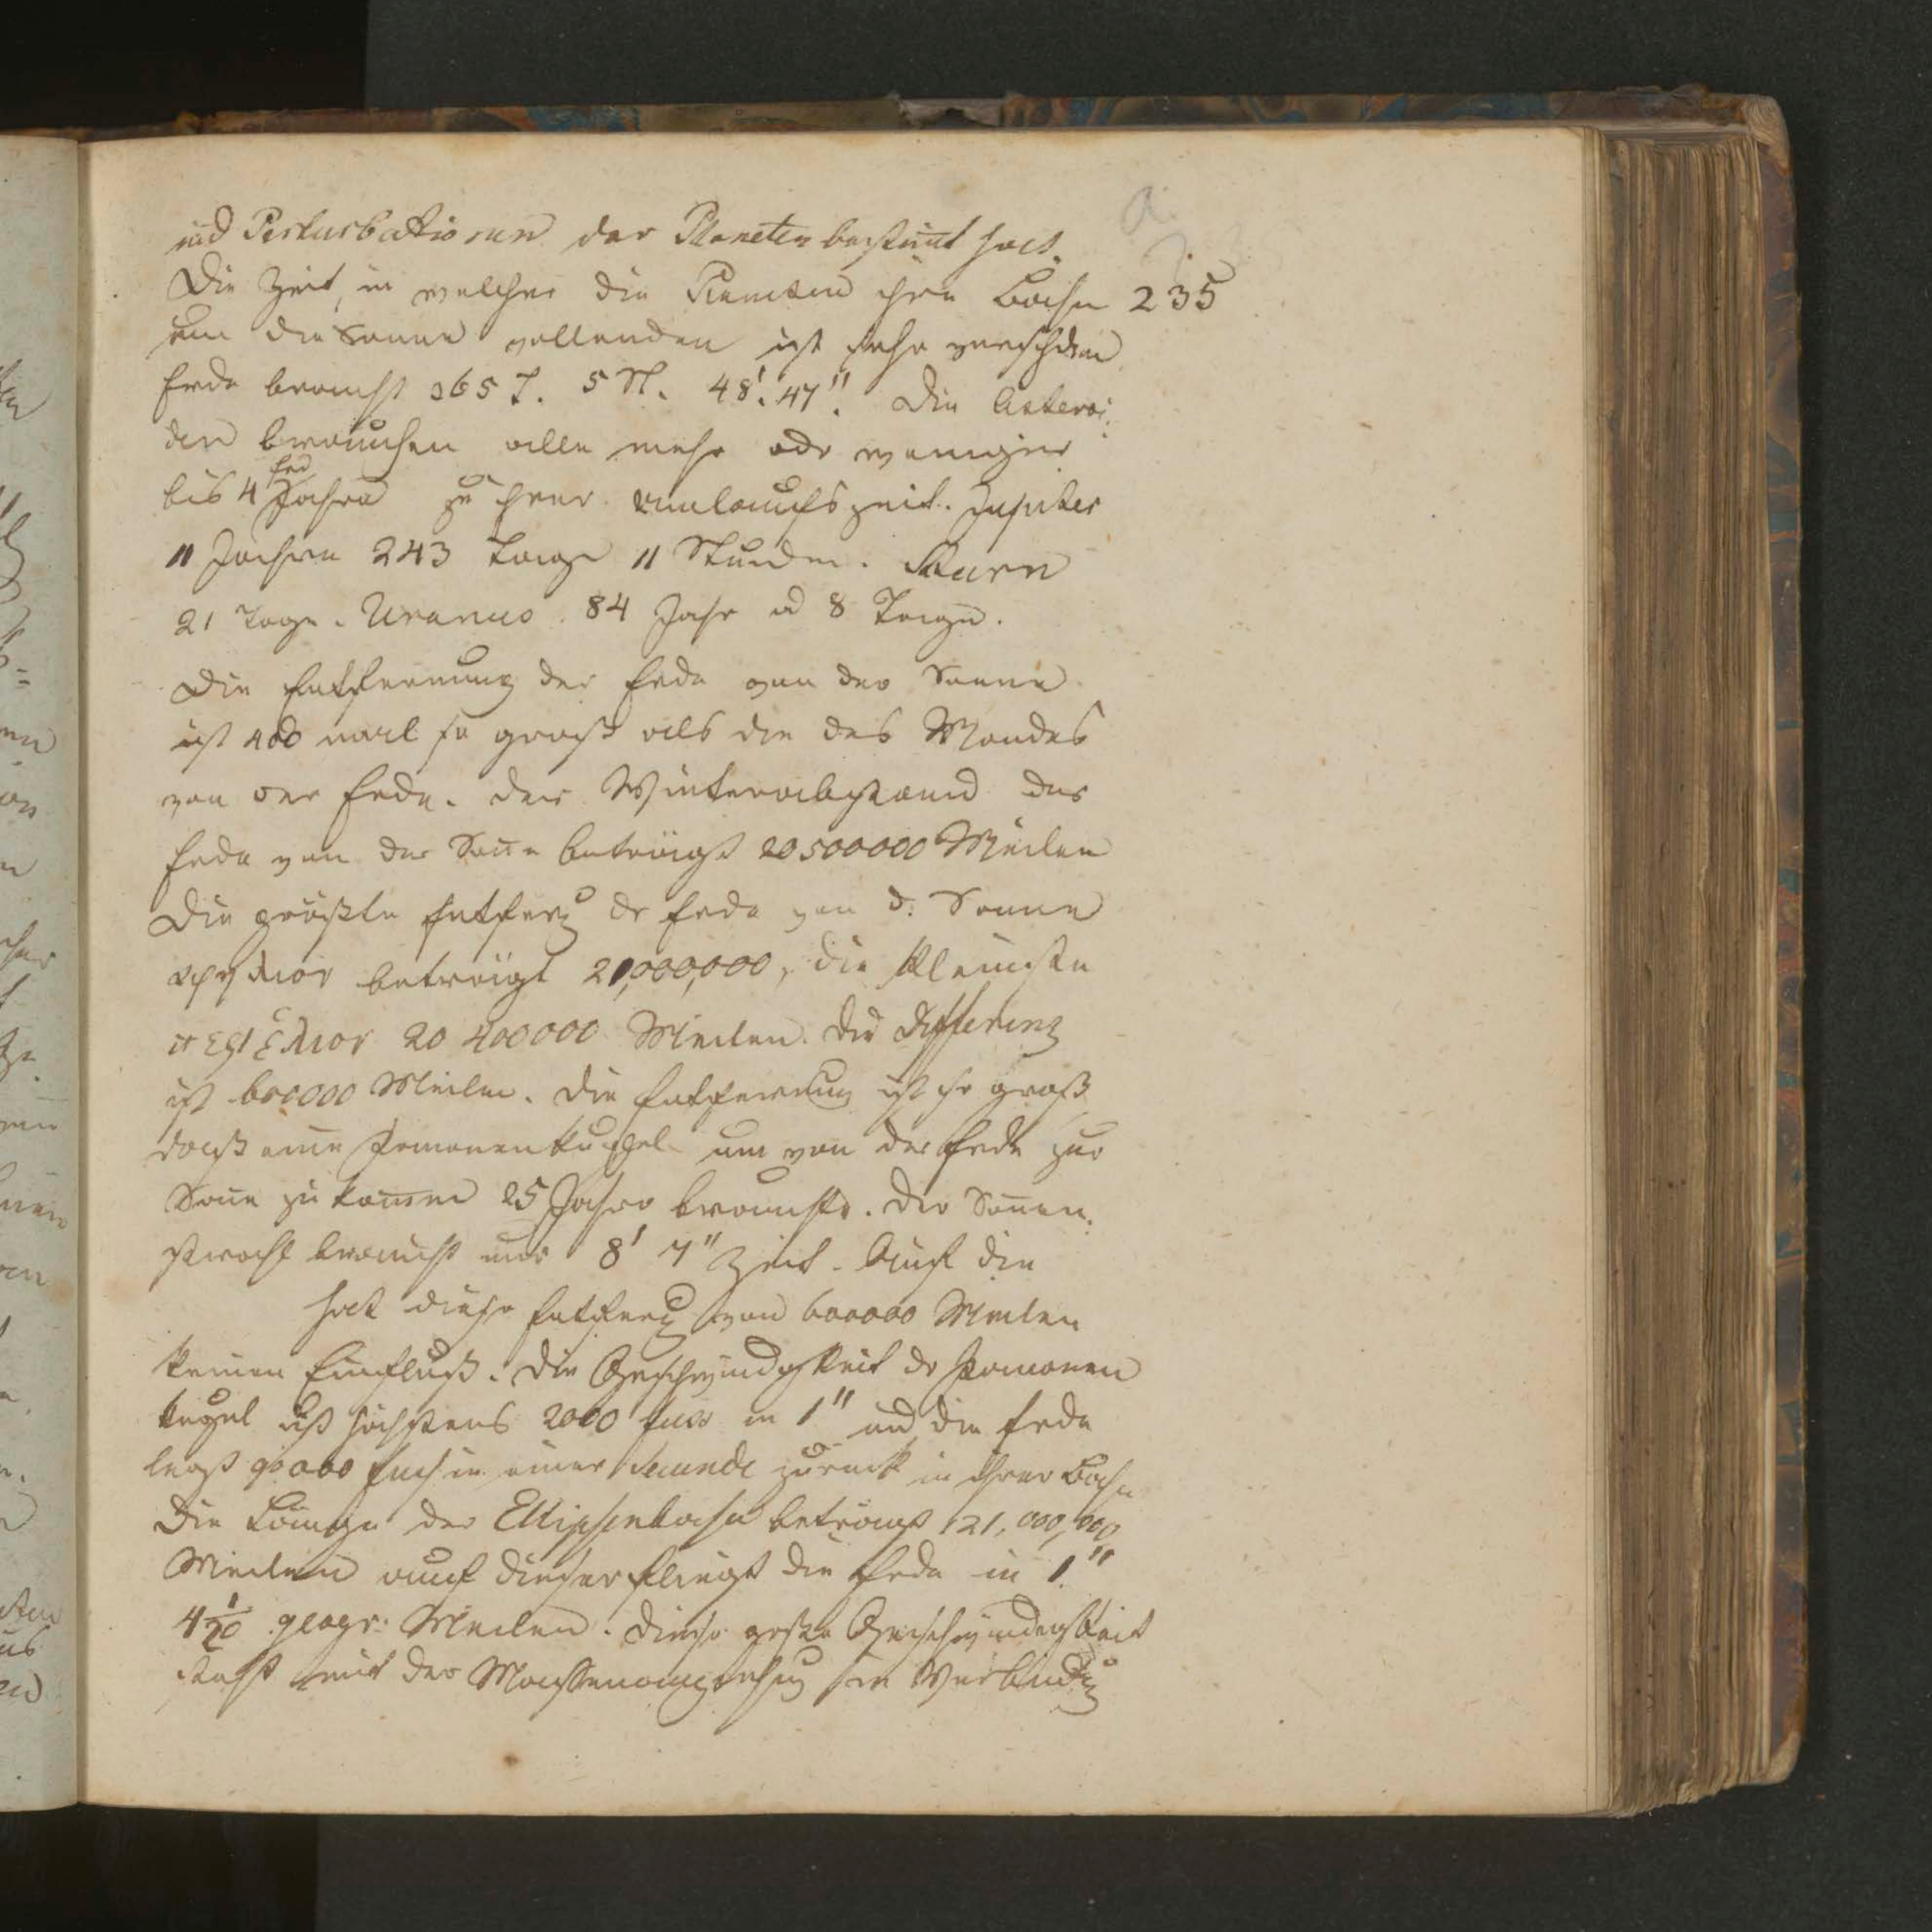 und Perturbationen der Planeten bestimt hat.
Die Zeit, in welcher die Planeten ihre Bahn 235
um die Sonne vollenden ist sehr verschdnen
Erde braucht 365 T. 5 St. 48'. 47". Die Asteroi¬
den brauchen alle mehr odr weniger
bis 4 Erd Jahre zu ihrer Umlaufszeit. Jupiter
11 Jahre 243 Tage 11 Stunden. Saturn
21 Tage. Uranus. 84 Jahr u 8 Tage.
Die Entfernung der Erde von der Sonne
ist 400 mal so groß als die des Mondes
von der Erde. Der Winterabstand der
Erde von der Soñe beträgt 20500000 Meilen
Die größte Entferng dr Erde von d. Sonne
αφηλιον beträgt 21,000,000, die kleinste
περιελιον 20 400000 Meilen. Die Differenz
ist 600000 Meilen. Die Entfernung ist so groß
daß eine Kanonenkugel um von der Erde zur
Soñe zu kom̃en 25 Jahre brauchte. Der Soñen¬
strahl braucht nur 8' 7" Zeit. Auf die
hat diese Entferng von 600000 Meilen
keinen Einfluß. Die Geschwindigkeit dr Kanonen
kugel ist höchstens 2000 Fuss in 1" und die Erde
legt 90000 Fuß in einer Secunde zurück in ihrer Bahn
Die Länge der Ellipsenbahn beträgt 121,000,000
Meilen auf dieser fliegt die Erde in 1"
4 1/10 geogr. Meilen. Diese große Geschwindigkeit
steht mit der Massenanziehung in Verbindg